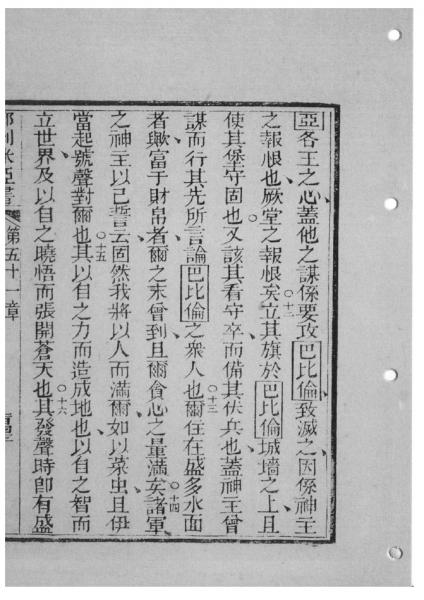 亞各王之心蓋他之謀係要攻巴比倫致滅之因係神主
之報恨也厥堂之報恨矣十二立其旗於巴比倫城墻之上且
使其堡守固也又該其看守卒而備其伏兵也蓋神主曾
謀而行其先所言論巴比倫之衆人也十三爾住在盛多水面
者歟富于財帛者爾之末曾到且爾貪心之量滿矣十四諸軍
之神主以己誓云固然我將以人而滿爾如以菜虫且伊
當起號聲對爾也十五其以自之力而造成地也以自之智而
立世界及以自之曉悟而張開蒼天也十六其發聲時卽有盛
耶利米亞書 第五十一章